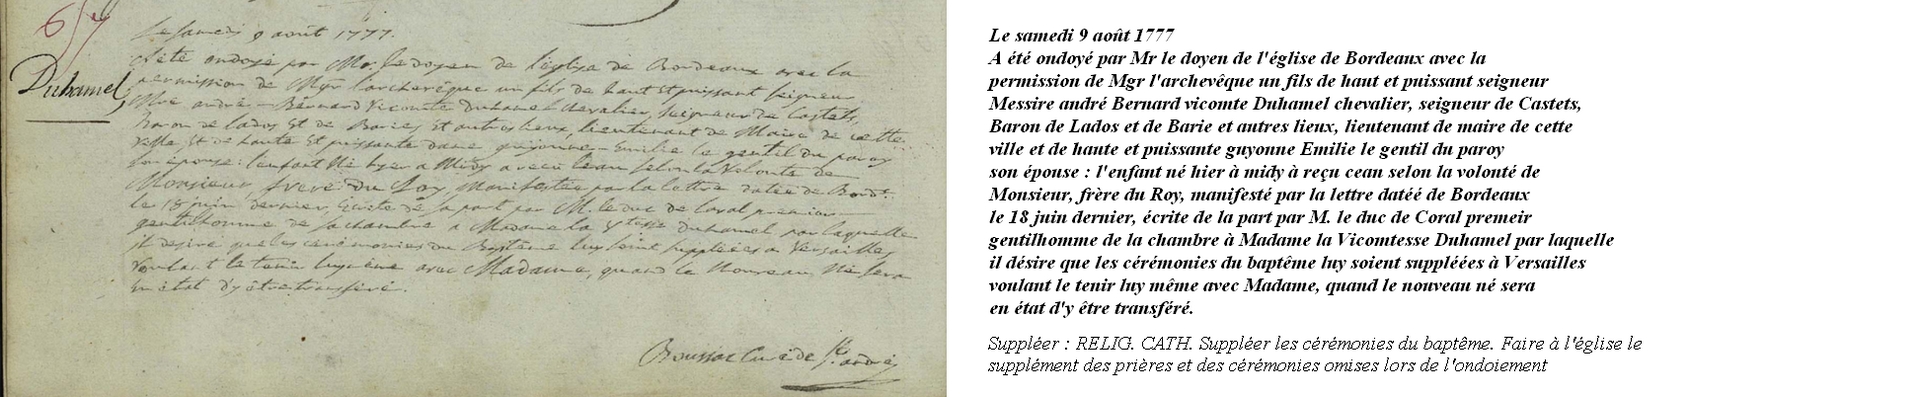 657
Duhamel
Le samedi 9 août 1777.
A été ondoyé par Mr. le doyen de l'église de Bordeaux avec la
permission de Mgr l'archevêque un fils de haut et puissant seigneur
Mre andré - Bernard Vicomte duhamel chevalier, seigneur de Castets,
Baron de lados et de Baries et autres lieux, lieutenant de Maire de cette
ville, et de haute et puissante dame guionne - Emilie le gentil du paroy
son épouse : l'enfant né hyer a Midy a reçu l'eau selon la volonté de
Monsieur, frère du Roy, Manifestée par la lettre datée de Bordx.
le 18 juin dernier, écrite de sa part par M. le duc de laval premier
gentilhomme de sa chambre a Madame la Vtesse duhamel par laquelle
il desire que les cérémonies du Baptême luy soient suppléées a Versailles
voulant le tenir luy même avec Madame, quand le Nouveau Né sera
en état d'y être transféré.
Curé de St. andré
Le samedi 9 août 1777
A été ondoyé par Mr le doyen de l'église de Bordeaux avec la
permission de Mgr l'archevêque un fils de haut et puissant seigneur
Messire andré Bernard vicomte Duhamel chevalier, seigneur de Castets,
Baron de Lados et de Barie et autres lieux, lieutenant de maire de cette
ville et de haute et puissante guyonne Emilie le gentil du paroy
son épouse : l'enfant né hier à midy à reçu cean selon la volonté de
Monsieur, frère du Roy, manifesté par la lettre datéé de Bordeaux
le 18 juin dernier, écrite de la part par M. le duc de Coral premeir
gentilhomme de la chambre à Madame la Vicomtesse Duhamel par laquelle
il désire que les cérémonies du baptême luy soient suppléées à Versailles
voulant le tenir luy même avec Madame, quand le nouveau né sera
en état d'y être transféré.
Suppléer : RELIG. CATH. Suppléer les cérémonies du baptême. Faire à l'église le
supplément des prières et des cérémonies omises lors de l'ondoiement